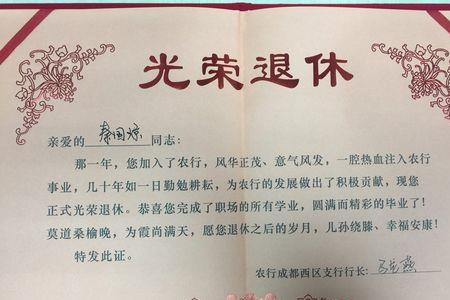 光荣退休
亲爱的 秦国琼 同志:
那一年，您加入了农行，风华正茂、意气风发，一腔热血注入农行
事业，几十年如一日勤勉耕耘，为农行的发展做出了积极贡献，现您
正式光荣退休。恭喜您完成了职场的所有学业，圆满而精彩的毕业了!
莫道桑榆晚，为霞尚满天，愿您退休之后的岁月，儿孙绕膝、幸福安康!
特发此证。
农行成都西区支行行长: